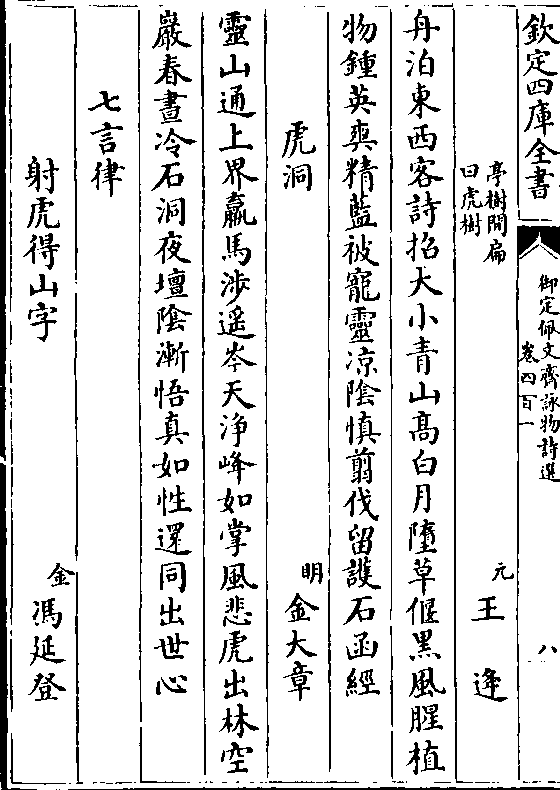 欽定四庫全書
御定佩文齋詠物詩選
卷四百一
八
亭樹間扁
曰虎樹
元
王逢
舟泊東西客詩招大小青山高白月墮草偃黑風腥植
物鍾英爽精藍被寵靈凉陰慎翦伐留護石函經
虎洞
明
金大章
靈山通上界羸馬涉遥岑天浄峰如掌風悲虎出林空
巖春晝冷石洞夜壇陰漸悟真如性還同出世心
七言律
射虎得山字
金
馮延登